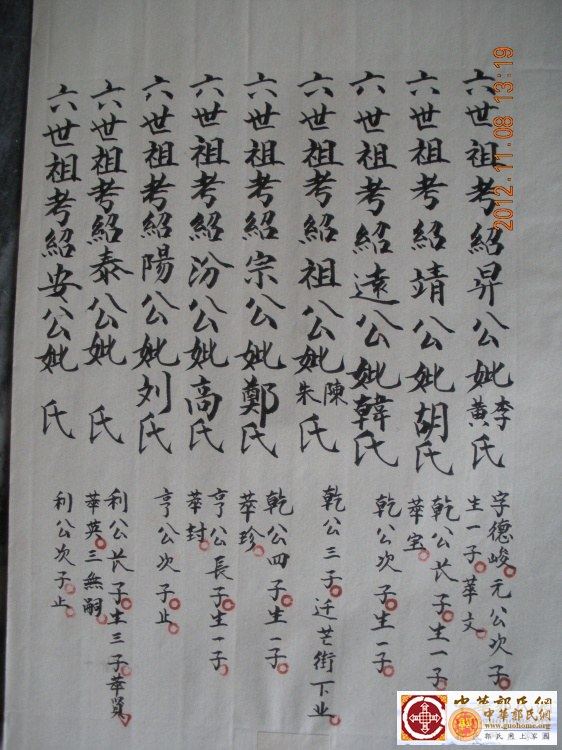 六世祖考紹昇公妣李黃氏
字德峻元公次子
生一子華文
六世祖考紹靖公妣胡氏
乾公長子生一子
華宝
六世祖考紹遠公妣韓氏
乾公次子生一子
六世祖考紹祖公妣陳朱氏
乾公三子迁芒街下业
六世祖考紹宗公妣鄭氏
乾公四子生一子
華珍
六世祖考紹汾公妣高氏
亨公長子生一子
華封
六世祖考紹陽公妣刘氏
亨公次子止
六世祖考紹泰公妣 氏
利公长子生三子華賢
華英三無嗣
六世祖考紹安公妣 氏
利公次子止
2012.11.08 13:19
中華郭氏網
www.guohome.org
郭氏网上家園